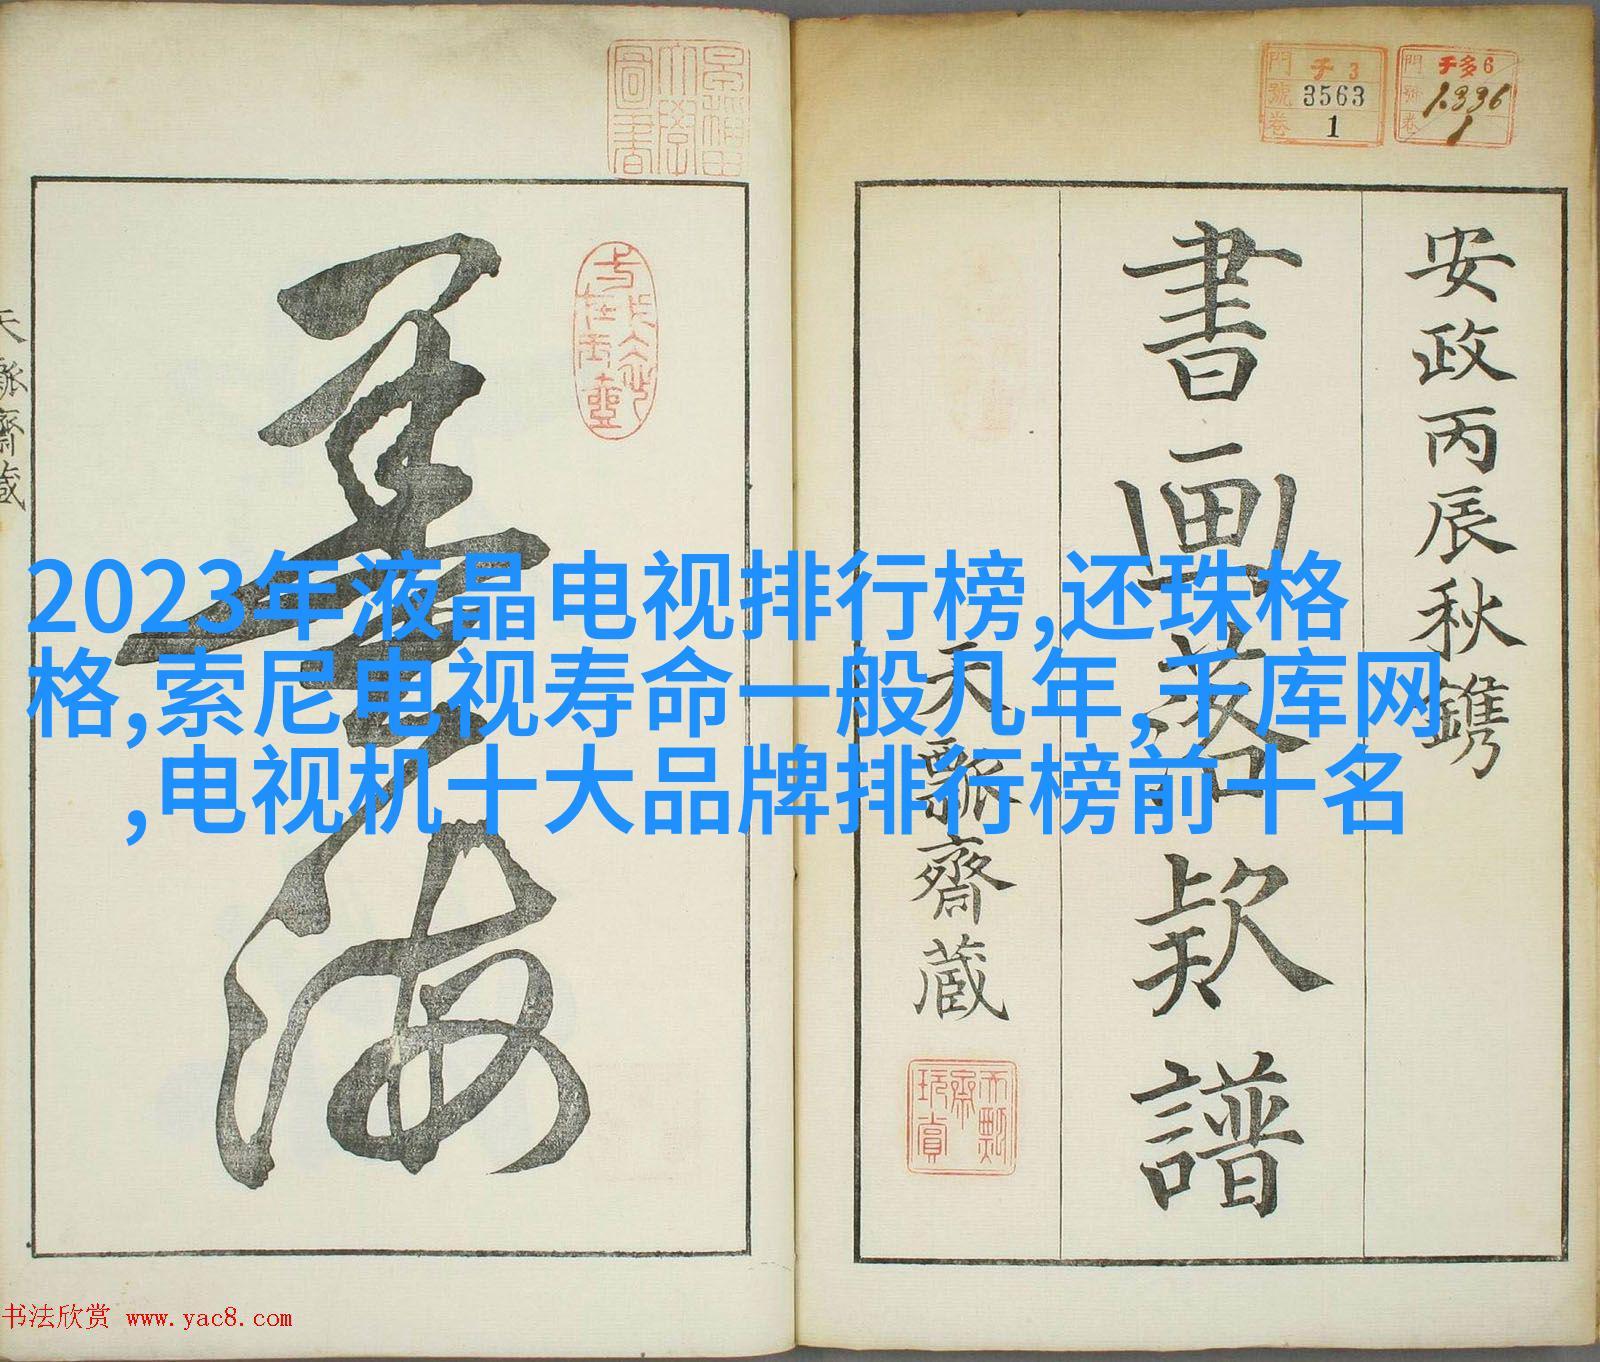 門 千 3
號 3563
卷 1
門 千多 6
號 1336
卷 1
安政丙辰秋鐫
書画落款譜
天瓢齋蔵
墨海
天瓢齋蔵
2023年液晶电视排行榜,还珠格
格,索尼电视寿命一般几年,千库网
,电视机十大品牌排行榜前十名
书法欣赏 www.yac8.com